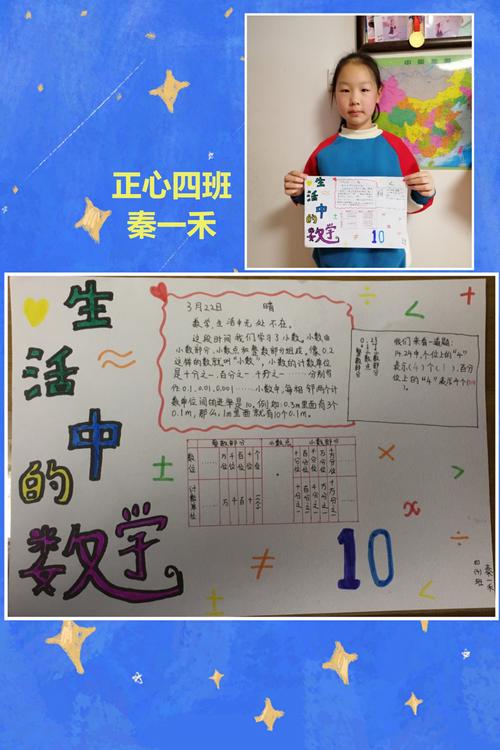 正心四班
秦一禾
生活中的数学
3月22日 晴
数学,生活中无处不在。
这段时间我们学习了小数。小数由
小数部分、小数点和整数部分组成,像0.2
这样的数就叫“小数”,小数的计数单位
是十分之一、百分之一、千分之一……分别写
作0.1、0.01、0.001……小数中,每相邻两个计
数单位间的进率是10。例如:0.3m里面有3个
0.1m,那么,1m里面就有10个0.1m。
我们来看一道题:
14.24中,个位上的“4”
表示(4)个(1),百分
位上的“4”表示4个
整数部分 小数点 小数部分
数位 …… 万位 千位 百位 十位 个位 · 十分位 百分位 千分位 万分位 ……
计数单位 …… 万 千 百 十 一(个) 十分之一 百分之一 千分之一 万分之一 ……
≈
÷
<
+
±
×
>
x
÷
≠
10
<
±
四(4)班
秦一禾